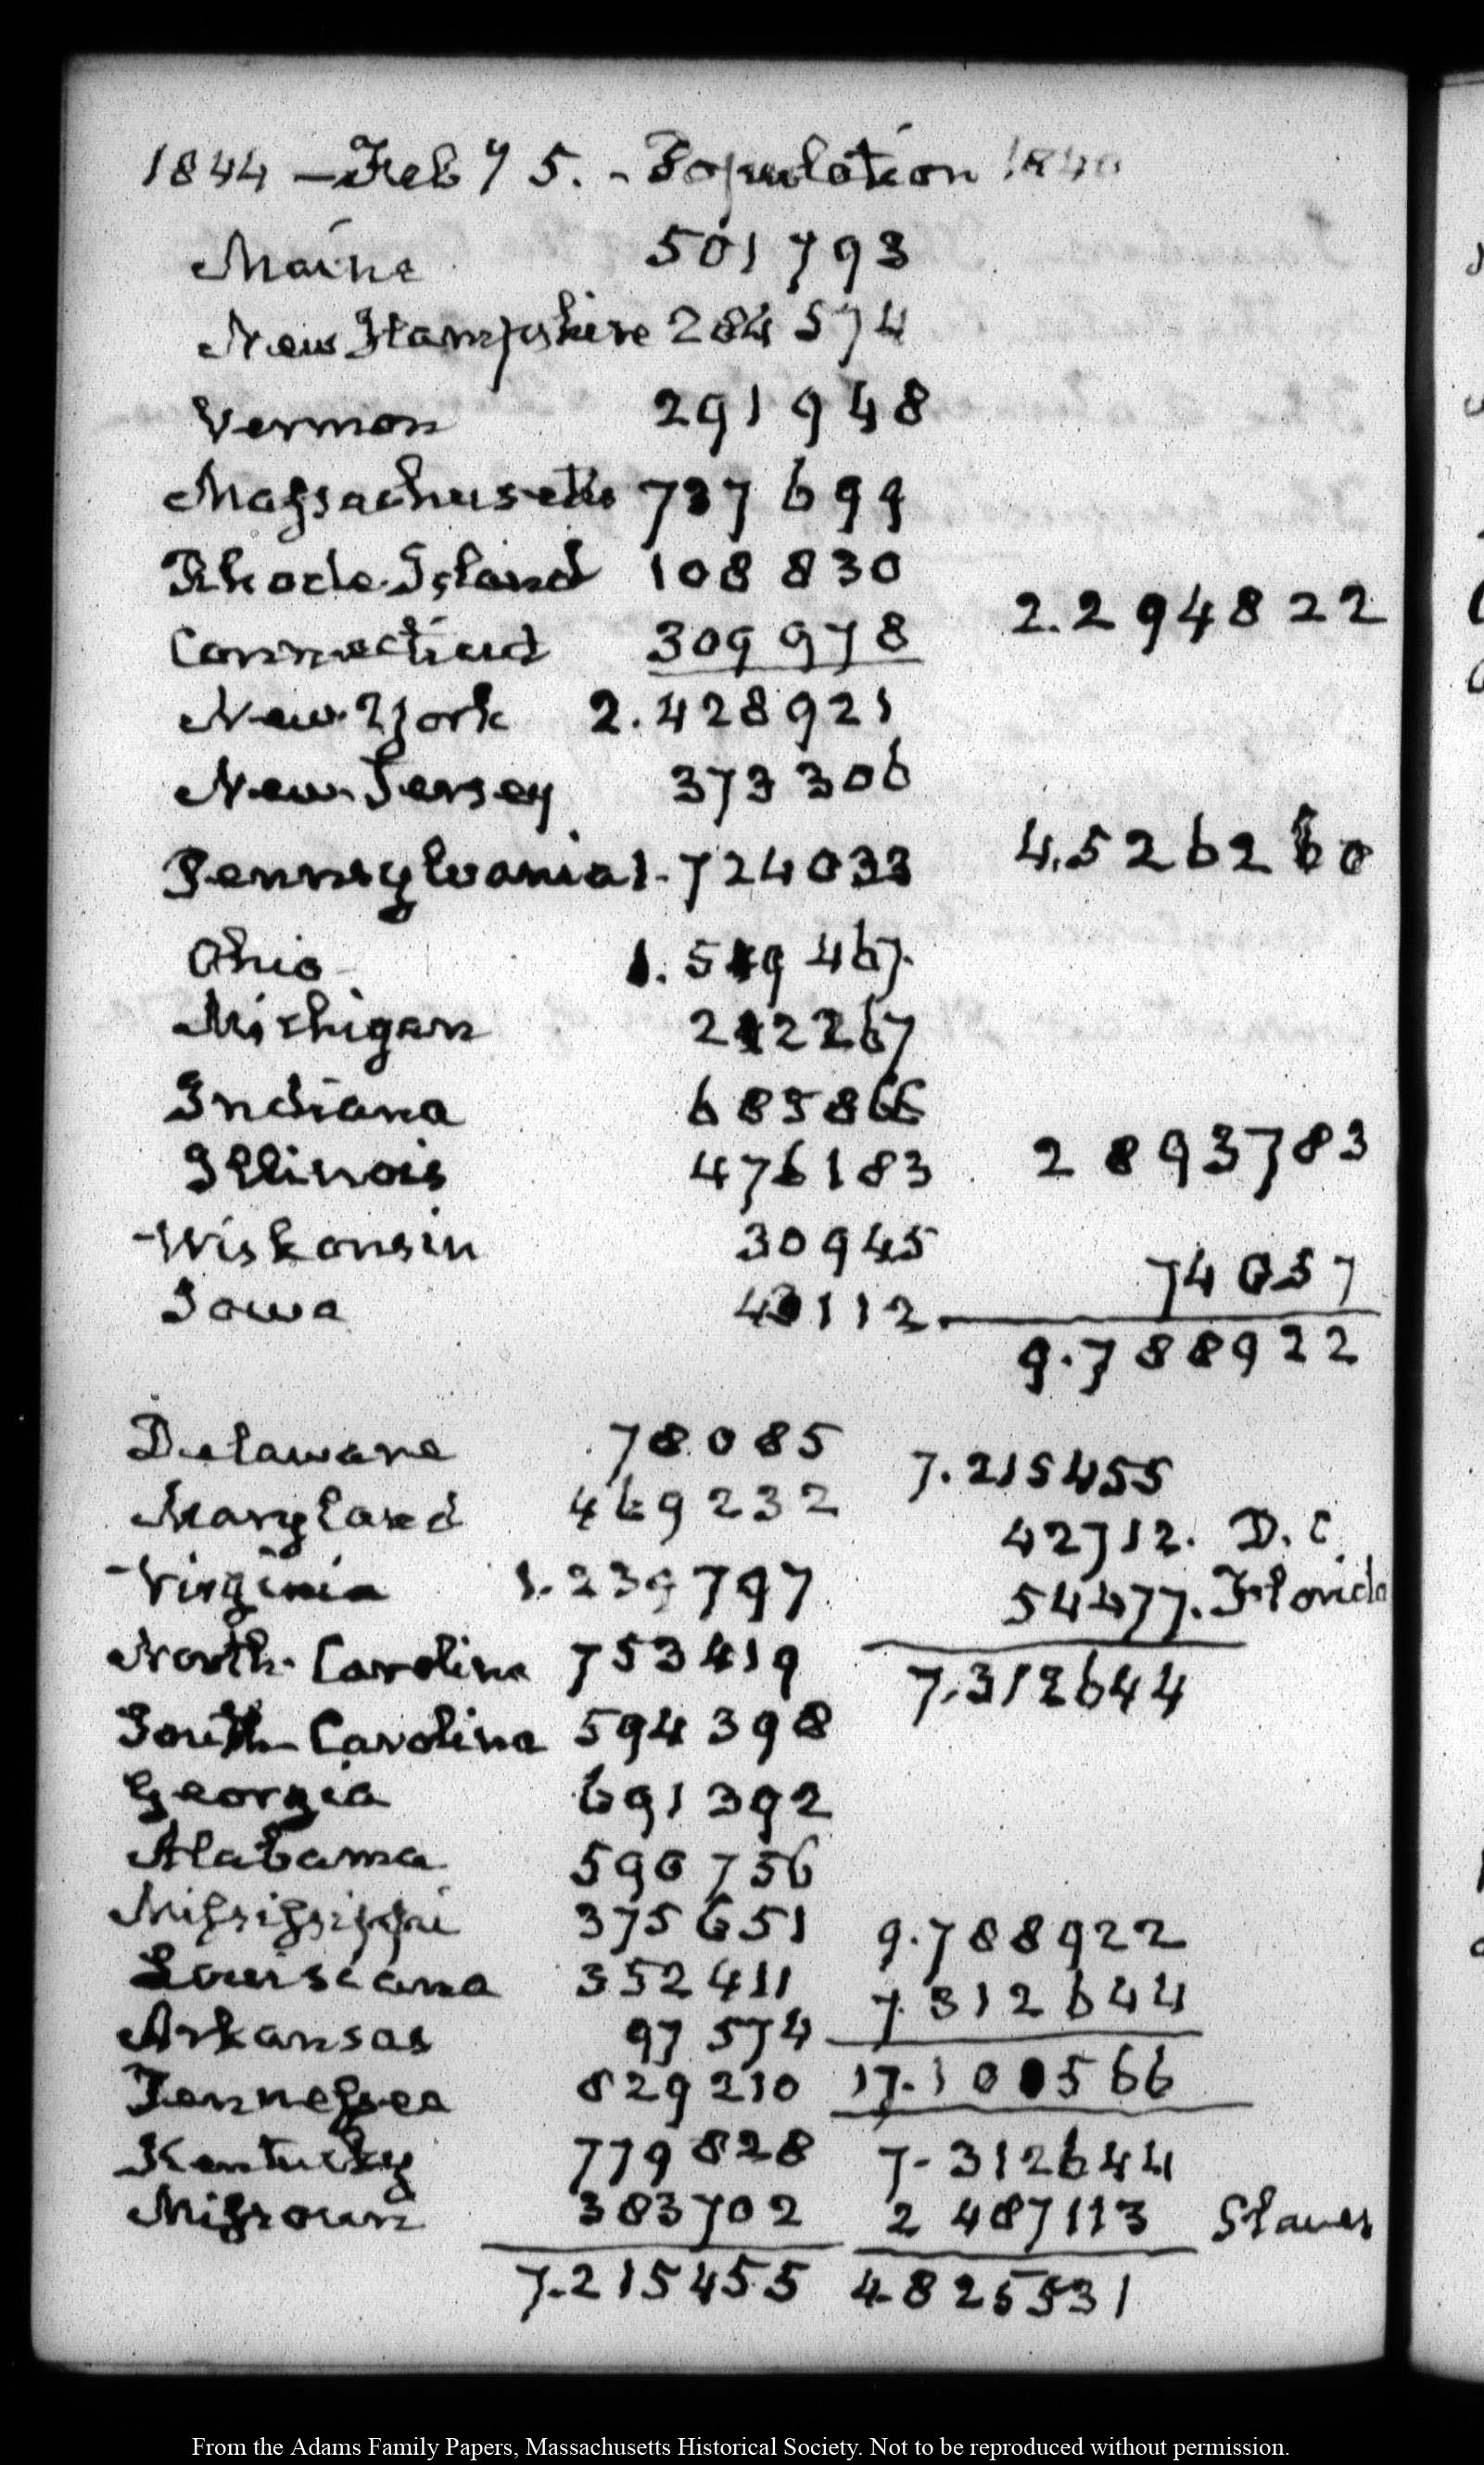 1844 – Feb y 5. – Population 1840
Maine 501793
New Hampshire 284574
Vermon 291948
Massachusetts 737699
Rhode-Island 108830
Connecticut 309978 2.294822
New-York 2.428921
New-Jersey 373306
Pennsylvania 1.724033 4.526260
Ohio 1.519467.
Michigan 212267
Indiana 685866
Illinois 476183 2893783
Wiskonsin 30945
Iowa 43112. 74057
9.788922
Delaware 78085 7.215455
Maryland 469232 42712. D.C.
Virginia 1.239797 54477. Florida
North-Carolina 753419 7.312644
South-Carolina 594398
Georgia 691392
Alabama 590756
Mississippi 375651 9.788922
Louisiana 352411 7.312644
Arkansas 97574
Tennessee 829210 17.100566
Kentucky 779828 7.312644
Missouri 383702 2 487113 Slaves
7.215455 4.825531
From the Adams Family Papers, Massachusetts Historical Society. Not to be reproduced without permission.